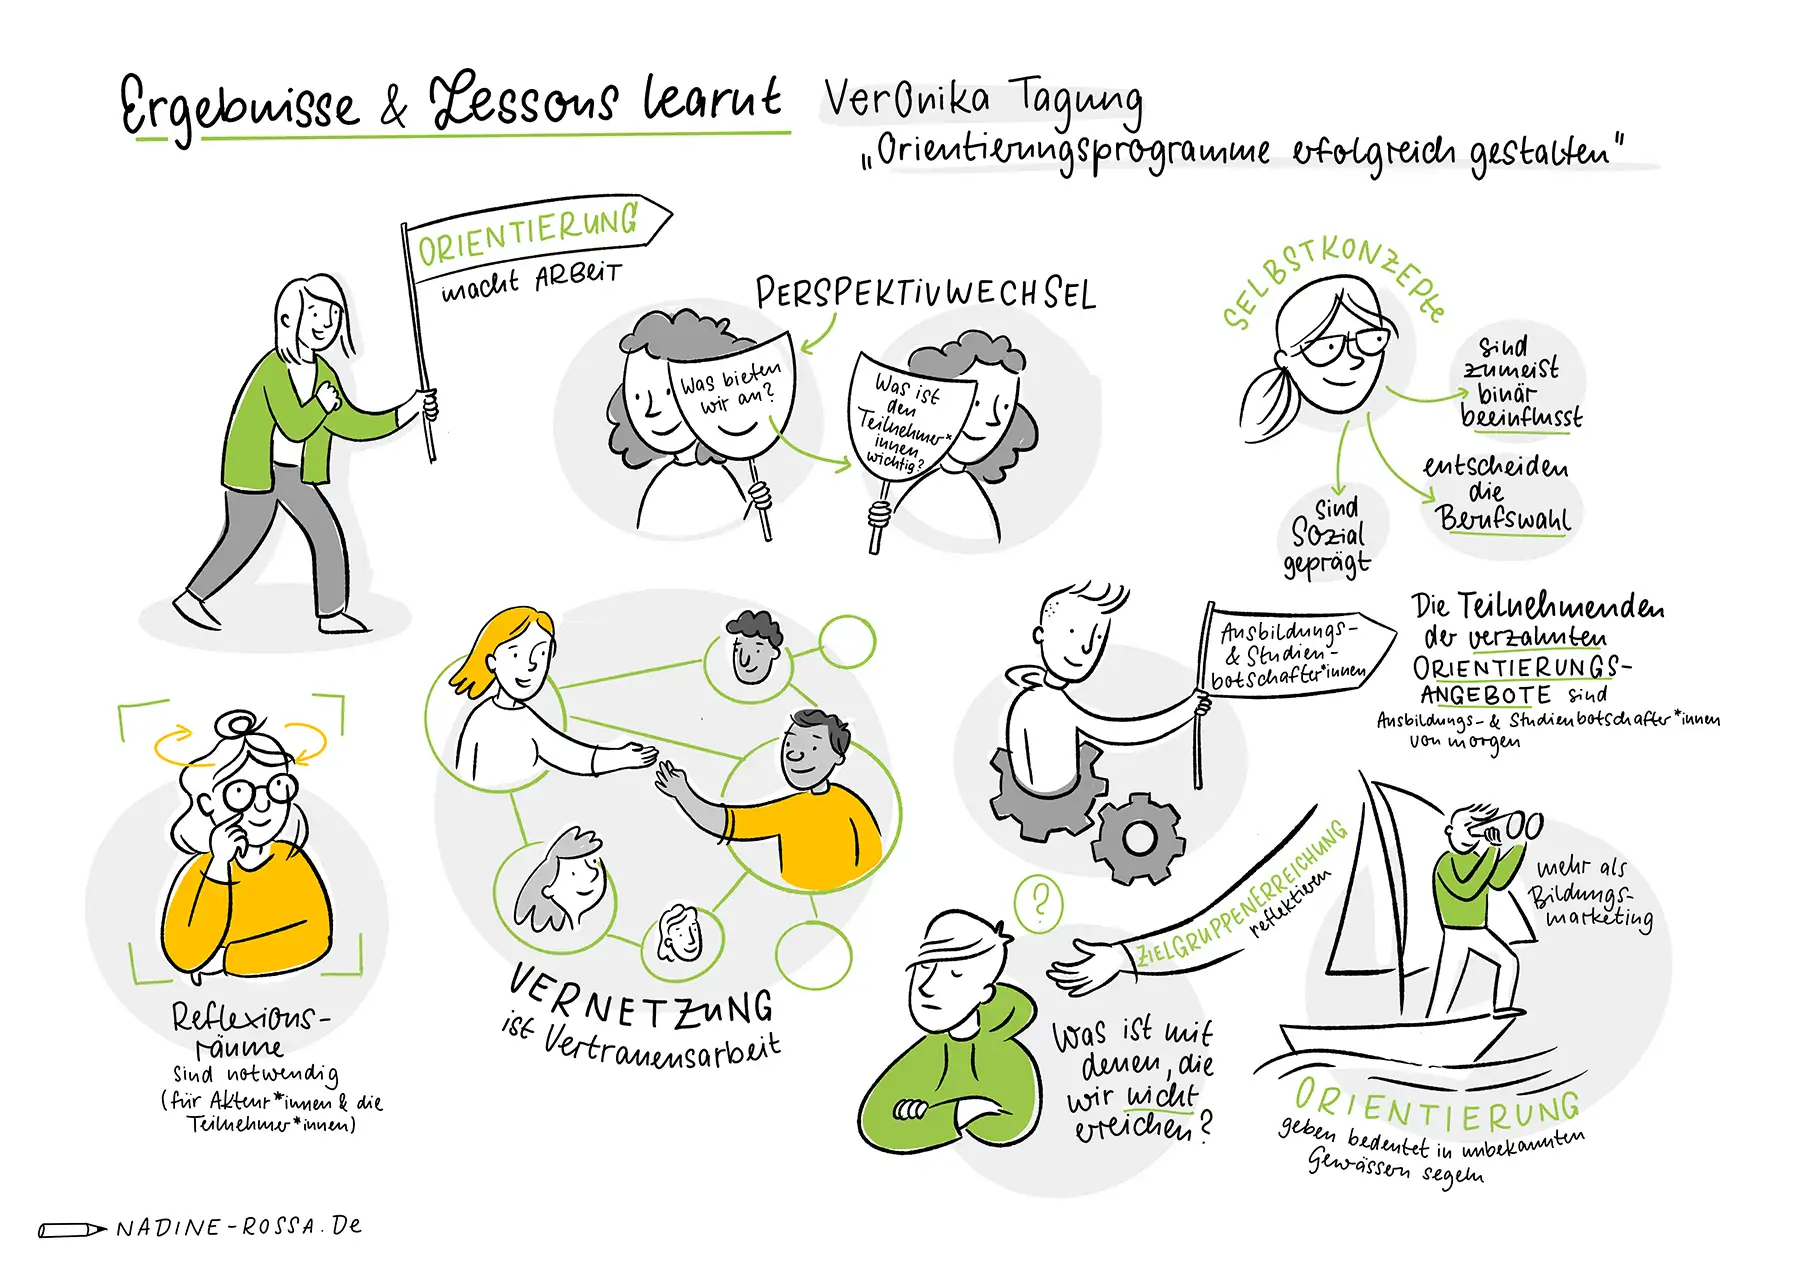 Ergebnisse & Lessons learnt
VerOnika Tagung
„Orientierungsprogramme erfolgreich gestalten"
ORIENTIERUNG
macht ARBEIT
PERSPEKTIVWECHSEL
Was bieten
wir an?
Was ist
den
Teilnehmer*
innen
wichtig?
SELBSTKONZEPte
sind
zumeist
binär
beeinflusst
entscheiden
die
Berufswahl
sind
Sozial
geprägt
Ausbildungs-
& Studien-
botschafter*innen
Die Teilnehmenden
der verzahnten
ORIENTIERUNGS-
ANGEBOTE sind
Ausbildungs- & Studienbotschafter*innen
von morgen
Reflexions-
räume
sind notwendig
(für Akteur*innen & die
Teilnehmer*innen)
VERNETZUNG
ist Vertrauensarbeit
?
ZIELGRUPPENERREICHUNG
reflektieren
Was ist mit
denen, die
wir nicht
erreichen?
mehr als
Bildungs-
marketing
ORIENTIERUNG
geben bedeutet in unbekannten
Gewässern segeln
NADINE-ROSSA.De